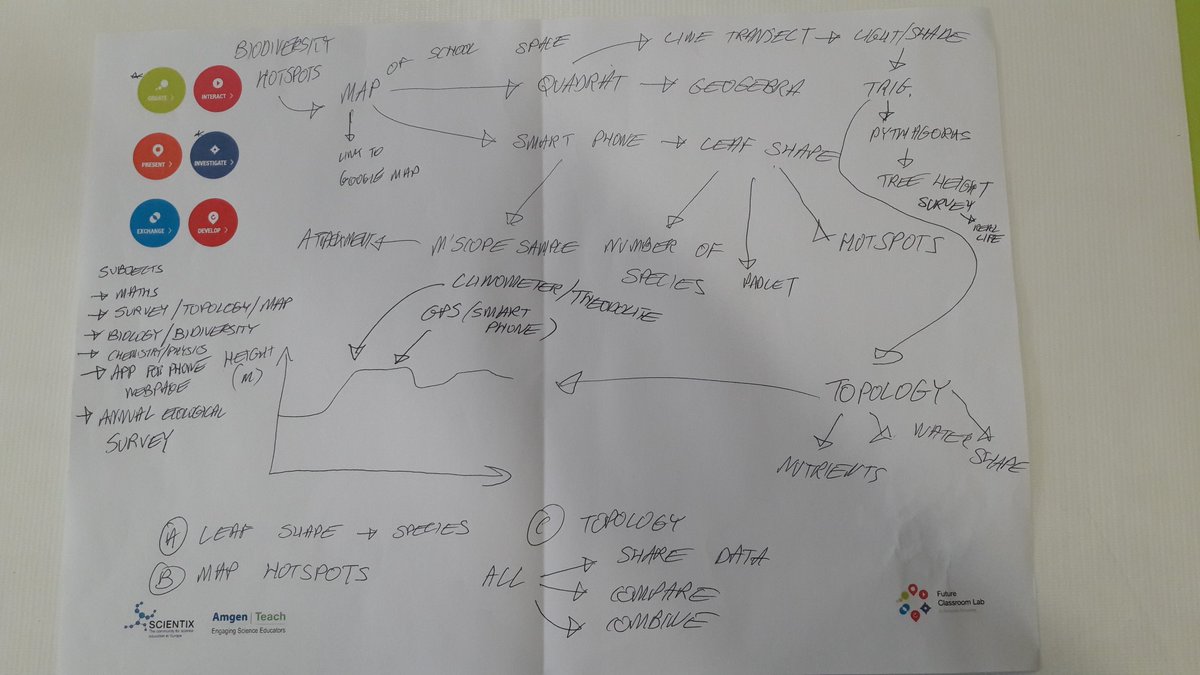 BIODIVERSITY
HOTSPOTS
MAP
OF SCHOOL SPACE
LINE TRANSECT
LIGHT/SHADE
QUADRAT
GEOGEBRA
TRIG.
PYTHAGORAS
TREE HEIGHT
SURVEY
REAL
LIFE
SMART PHONE
LEAF SHAPE
LINK TO
GOOGLE MAP
CREATE >
INTERACT >
PRESENT >
INVESTIGATE >
EXCHANGE >
DEVELOP >
ATTACHMENT
M'SCOPE SAMPLE
NUMBER OF
SPECIES
PADLET
HOTSPOTS
SUBJECTS
MATHS
SURVEY/TOPOLOGY/MAP
BIOLOGY/BIDIVERSITY
CHEMISTRY/PHYSICS
APP FOR PHONE
WEBPAGE
ANNUAL ECOLOGICAL
SURVEY
CLINOMETER/THEODOLITE
GPS (SMART
PHONE)
HEIGHT
(M)
TOPOLOGY
NUTRIENTS
WATER
SHAPE
A LEAF SHAPE → SPECIES
B MAP HOTSPOTS
C TOPOLOGY
ALL
SHARE DATA
COMPARE
COMBINE
SCIENTIX
The community for science
education in Europe
Amgen | Teach
Engaging Science Educators
Future
Classroom Lab